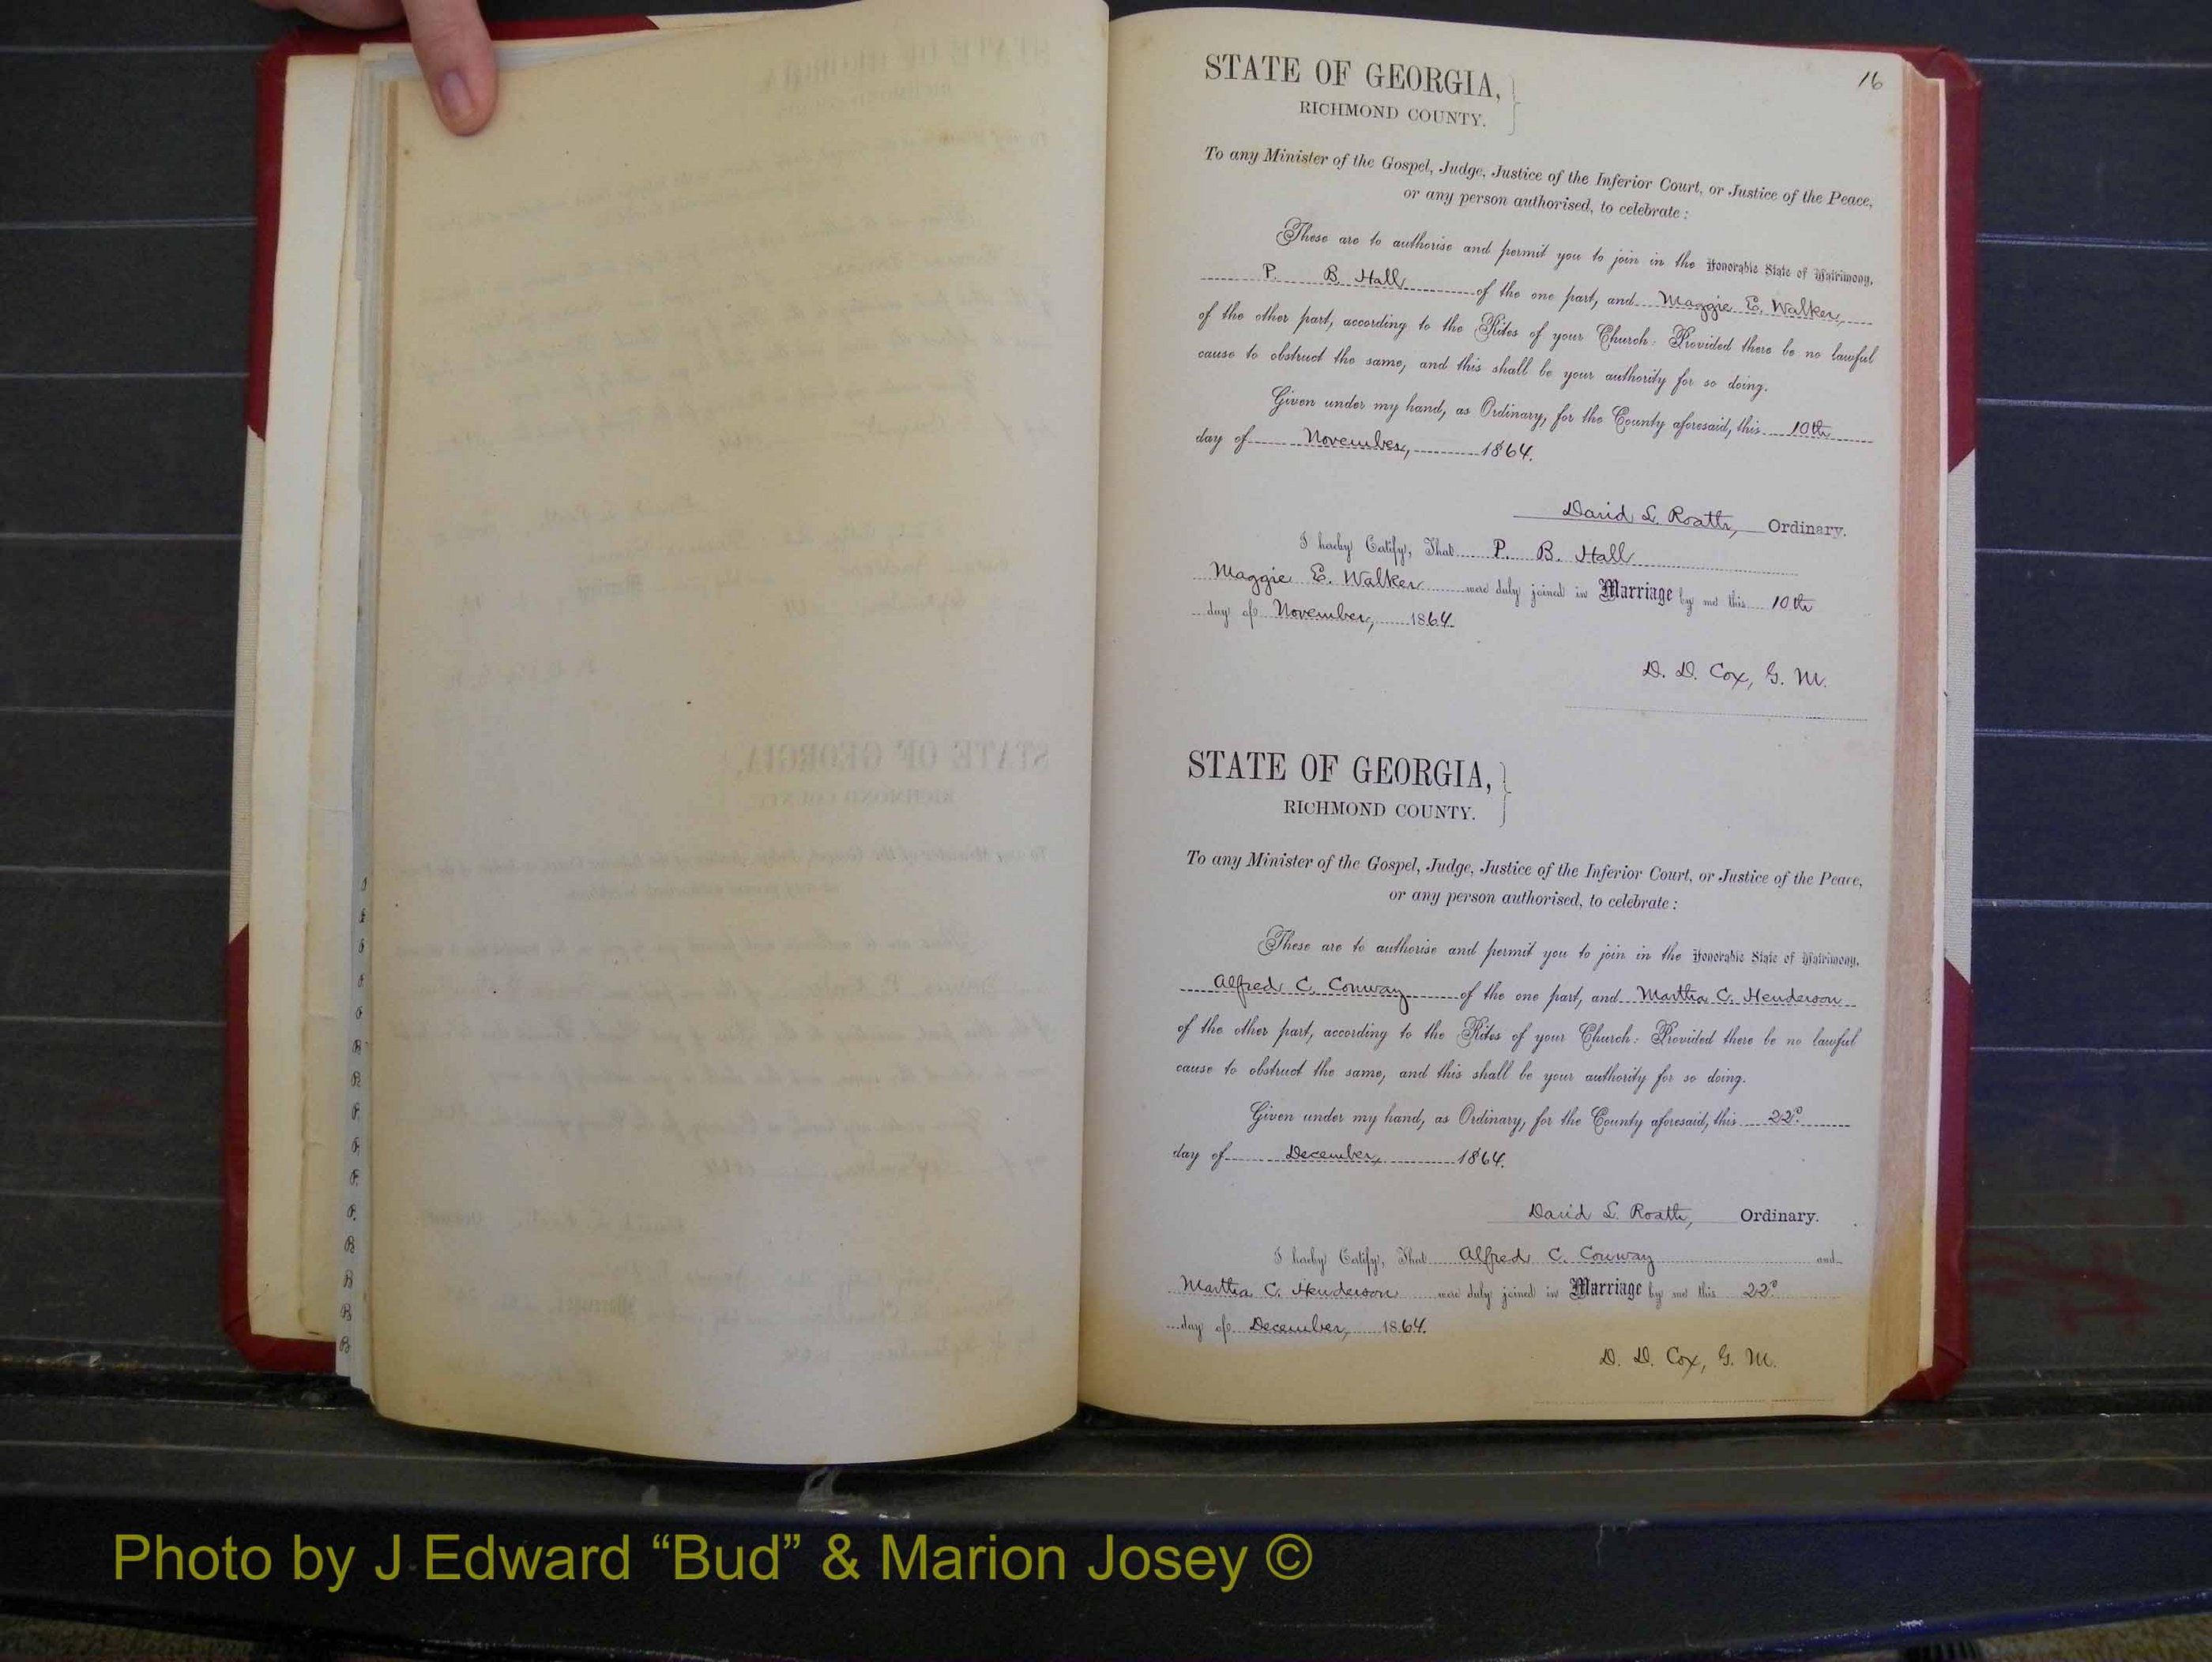 16
STATE OF GEORGIA,
RICHMOND COUNTY.
To any Minister of the Gospel, Judge, Justice of the Inferior Court, or Justice of the Peace,
or any person authorised, to celebrate:
These are to authorise and permit you to join in the Honorable State of Matrimony,
P. B. Hall of the one part, and Maggie E. Walker,
of the other part, according to the Rites of your Church: Provided there be no lawful
cause to obstruct the same, and this shall be your authority for so doing.
Given under my hand, as Ordinary, for the County aforesaid, this 10th
day of November, 1864.
David L. Roath, Ordinary.
I hereby Certify, That P. B. Hall
Maggie E. Walker were duly joined in Marriage by me this 10th
day of November, 1864.
D. D. Cox, G. M.
STATE OF GEORGIA,
RICHMOND COUNTY.
To any Minister of the Gospel, Judge, Justice of the Inferior Court, or Justice of the Peace,
or any person authorised, to celebrate:
These are to authorise and permit you to join in the Honorable State of Matrimony,
Alfred C. Conway of the one part, and Martha C. Henderson
of the other part, according to the Rites of your Church: Provided there be no lawful
cause to obstruct the same, and this shall be your authority for so doing.
Given under my hand, as Ordinary, for the County aforesaid, this 22d.
day of December, 1864.
David L. Roath, Ordinary.
I hereby Certify, That Alfred C. Conway and
Martha C. Henderson were duly joined in Marriage by me this 22d
day of December, 1864.
D. D. Cox, G. M.
Photo by J Edward “Bud” & Marion Josey ©